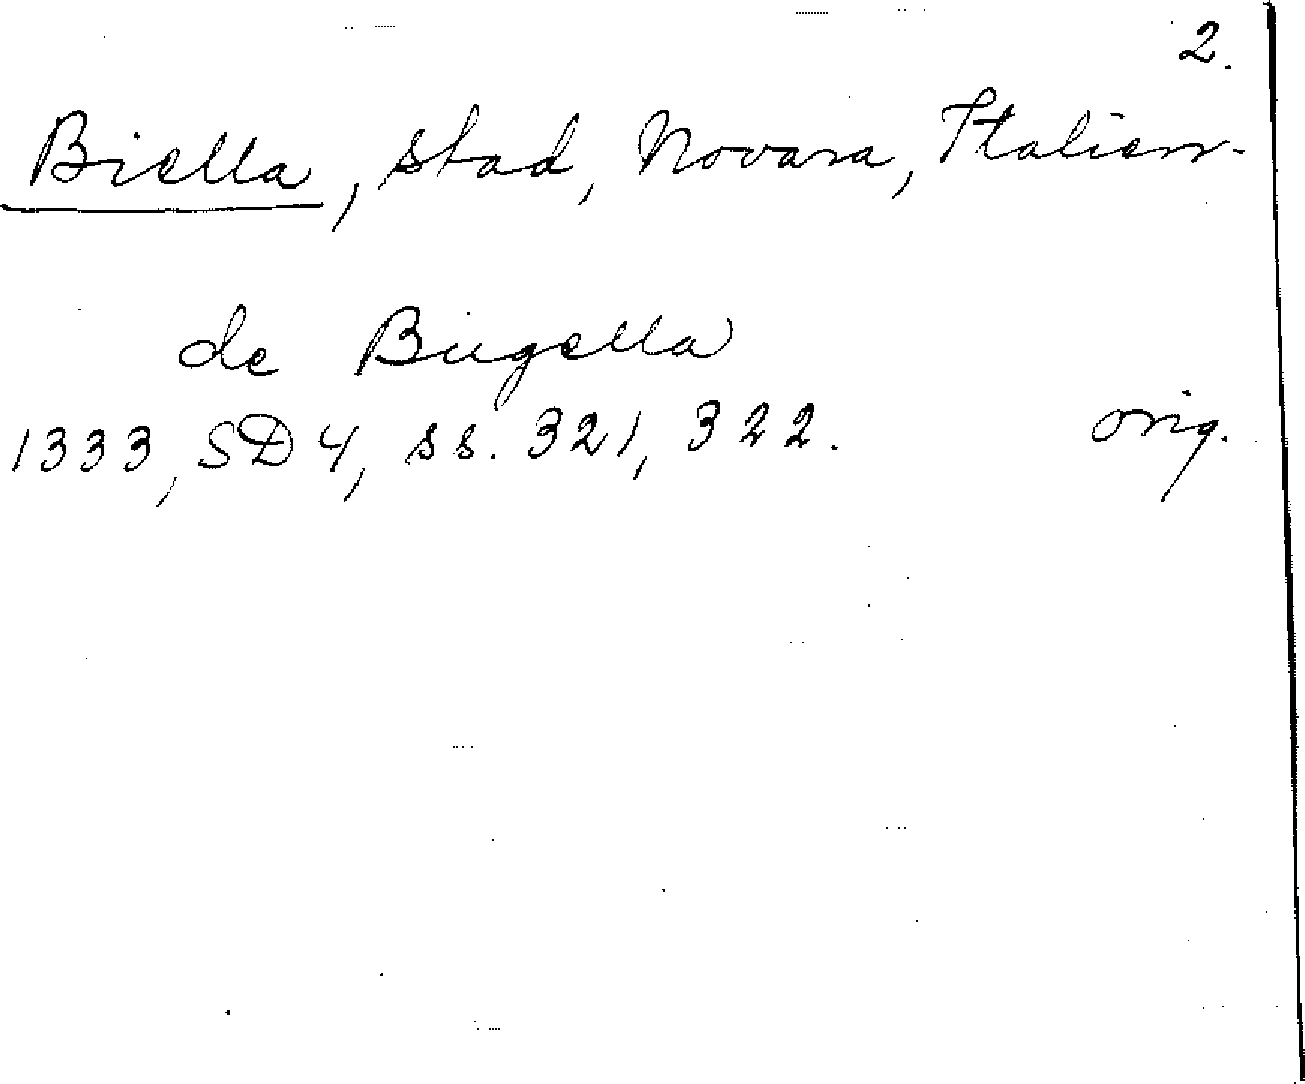 2.
Biella, stad, Novara, Italien.
de Bugella
1333, SD 4, ss. 321, 322. orig.